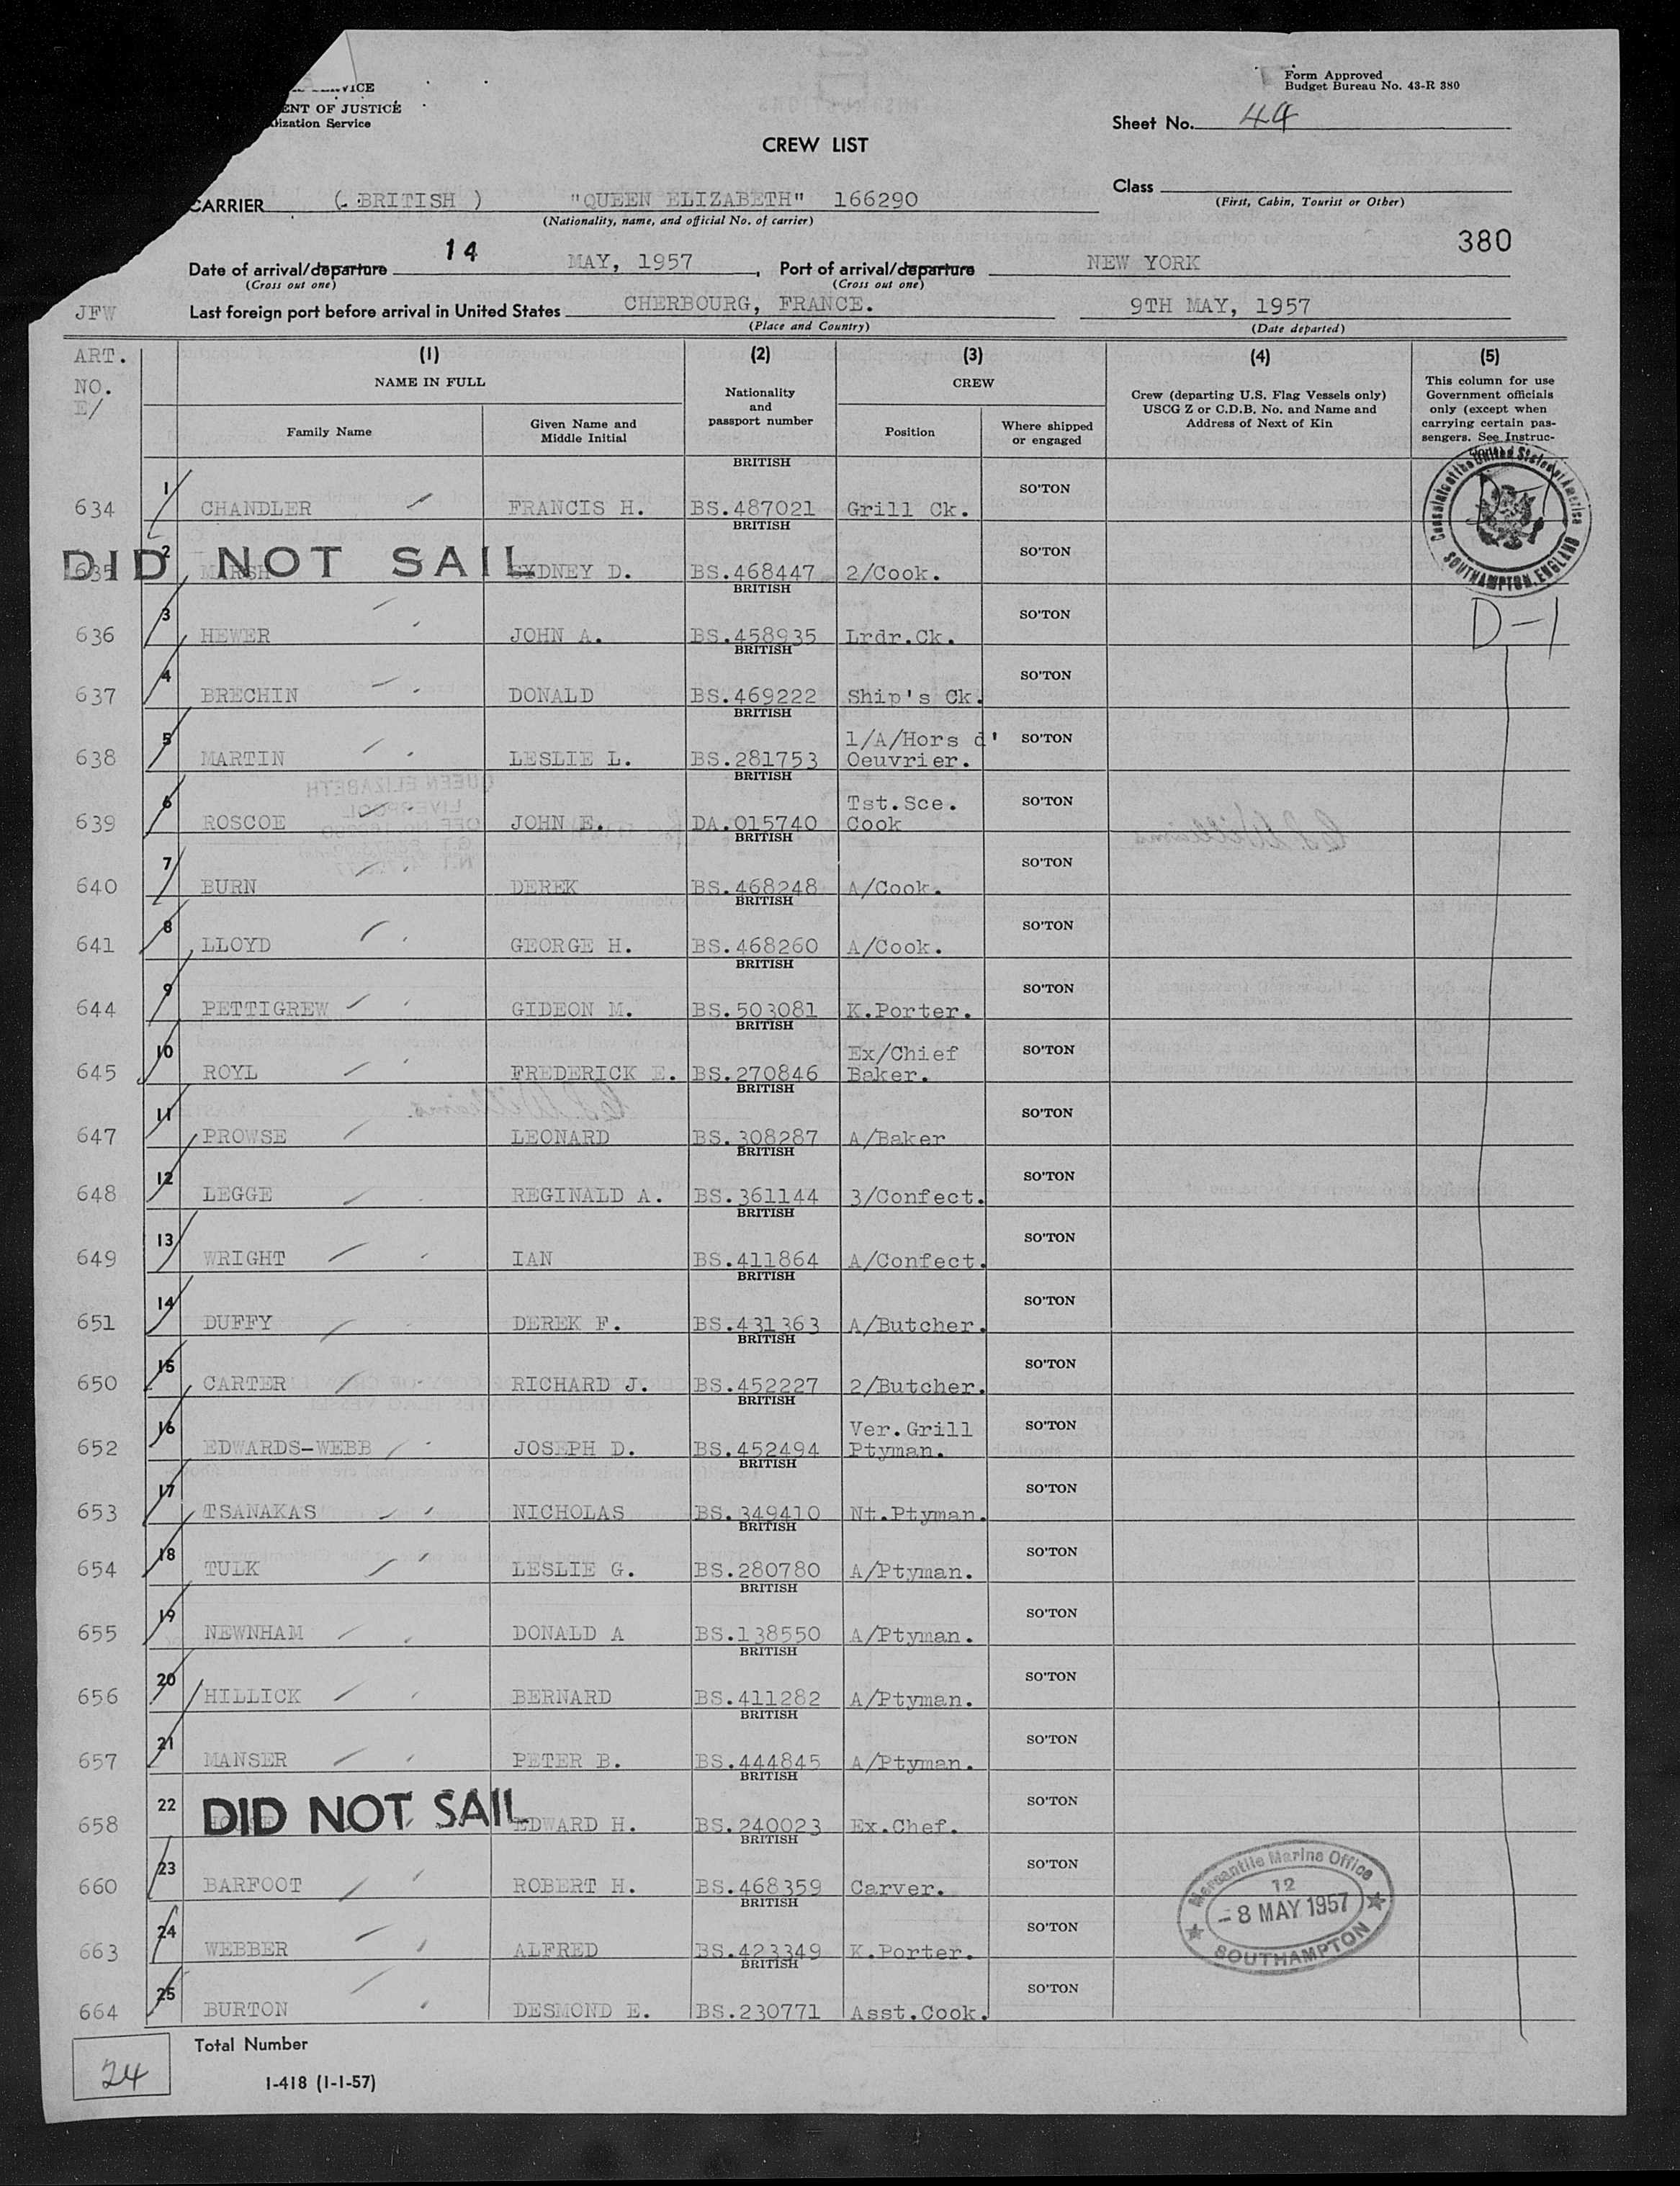 VICE
ENT OF JUSTICE
ization Service
Form Approved
Budget Bureau No. 43-R 380
Sheet No. 44
CREW LIST
Class
(First, Cabin, Tourist or Other)
CARRIER ( BRITISH ) "QUEEN ELIZABETH" 166290
(Nationality, name, and official No. of carrier)
380
Date of arrival/departure 14 MAY, 1957, Port of arrival/departure NEW YORK
(Cross out one) (Cross out one)
JFW Last foreign port before arrival in United States CHERBOURG, FRANCE. 9TH MAY, 1957
(Place and Country) (Date departed)
ART. NO. E/
(1) NAME IN FULL
Family Name
Given Name and Middle Initial
(2) Nationality and passport number
(3) CREW
Position
Where shipped or engaged
(4) Crew (departing U.S. Flag Vessels only) USCG Z or C.D.B. No. and Name and Address of Next of Kin
(5) This column for use Government officials only (except when carrying certain passengers. See Instruc-
Consulate of the United States of America
SOUTHAMPTON, ENGLAND
D-1
634 1 CHANDLER FRANCIS H. BRITISH BS.487021 Grill Ck. SO'TON
635 2 MARSH SYDNEY D. BRITISH BS.468447 2/Cook. SO'TON
DID NOT SAIL
636 3 HEWER JOHN A. BRITISH BS.458935 Lrdr.Ck. SO'TON
637 4 BRECHIN DONALD BRITISH BS.469222 Ship's Ck. SO'TON
638 5 MARTIN LESLIE L. BRITISH BS.281753 1/A/Hors d' Oeuvrier. SO'TON
639 6 ROSCOE JOHN E. BRITISH DA.015740 Tst.Sce. Cook SO'TON
640 7 BURN DEREK BRITISH BS.468248 A/Cook. SO'TON
641 8 LLOYD GEORGE H. BRITISH BS.468260 A/Cook. SO'TON
644 9 PETTIGREW GIDEON M. BRITISH BS.503081 K.Porter. SO'TON
645 10 ROYL FREDERICK E. BRITISH BS.270846 Ex/Chief Baker. SO'TON
647 11 PROWSE LEONARD BRITISH BS.308287 A/Baker SO'TON
648 12 LEGGE REGINALD A. BRITISH BS.361144 3/Confect. SO'TON
649 13 WRIGHT IAN BRITISH BS.411864 A/Confect. SO'TON
651 14 DUFFY DEREK F. BRITISH BS.431363 A/Butcher. SO'TON
650 15 CARTER RICHARD J. BRITISH BS.452227 2/Butcher. SO'TON
652 16 EDWARDS-WEBB JOSEPH D. BRITISH BS.452494 Ver.Grill Ptyman. SO'TON
653 17 TSANAKAS NICHOLAS BRITISH BS.349410 Nt.Ptyman. SO'TON
654 18 TULK LESLIE G. BRITISH BS.280780 A/Ptyman. SO'TON
655 19 NEWNHAM DONALD A BRITISH BS.138550 A/Ptyman. SO'TON
656 20 HILLICK BERNARD BRITISH BS.411282 A/Ptyman. SO'TON
657 21 MANSER PETER B. BRITISH BS.444845 A/Ptyman. SO'TON
658 22 DID NOT SAIL EDWARD H. BRITISH BS.240023 Ex.Chef. SO'TON
660 23 BARFOOT ROBERT H. BRITISH BS.468359 Carver. SO'TON
663 24 WEBBER ALFRED BRITISH BS.423349 K.Porter. SO'TON
664 25 BURTON DESMOND E. BRITISH BS.230771 Asst.Cook. SO'TON
Mercantile Marine Office
12
- 8 MAY 1957
SOUTHAMPTON
24 Total Number
I-418 (1-1-57)